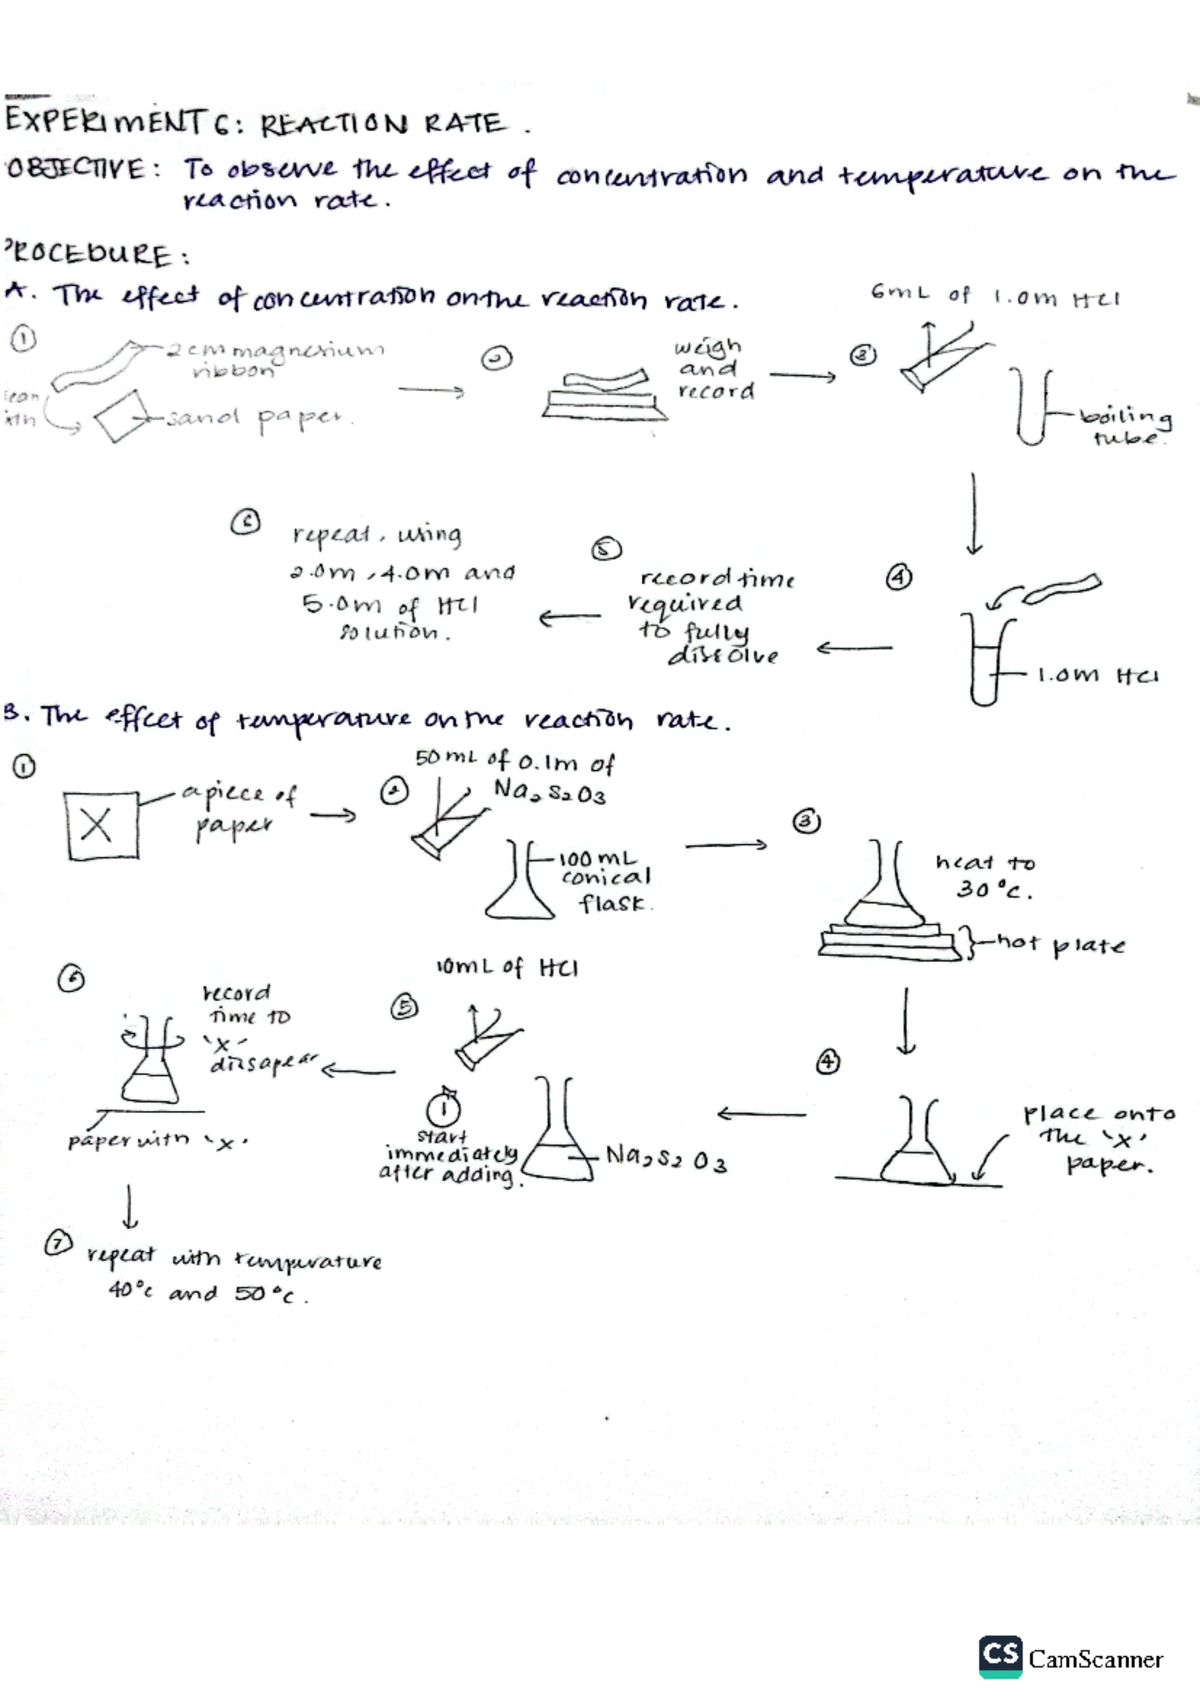 EXPERIMENT 6: REACTION RATE .
OBJECTIVE: To observe the effect of concentration and temperature on the
reaction rate.
PROCEDURE:
A. The effect of concentration on the reaction rate.
①
2cm magnesium
ribbon
sand paper.
②
weigh
and
record
③
6mL of 1.0m HCl
boiling
tube.
④
1.0m HCl
⑤
record time
required
to fully
dissolve
⑥
repeat, using
2.0m, 4.0m and
5.0m of HCl
solution.
B. The effect of temperature on the reaction rate.
①
X
a piece of
paper
②
50mL of 0.1m of
Na2S2O3
100mL
conical
flask.
③
heat to
30°c.
hot plate
④
place onto
the 'x'
paper.
⑤
10mL of HCl
start
immediately
after adding.
Na2S2O3
⑥
record
time to
'x'
dissapear
paper with 'x'
⑦ repeat with temperature
40°c and 50°c.
CS CamScanner